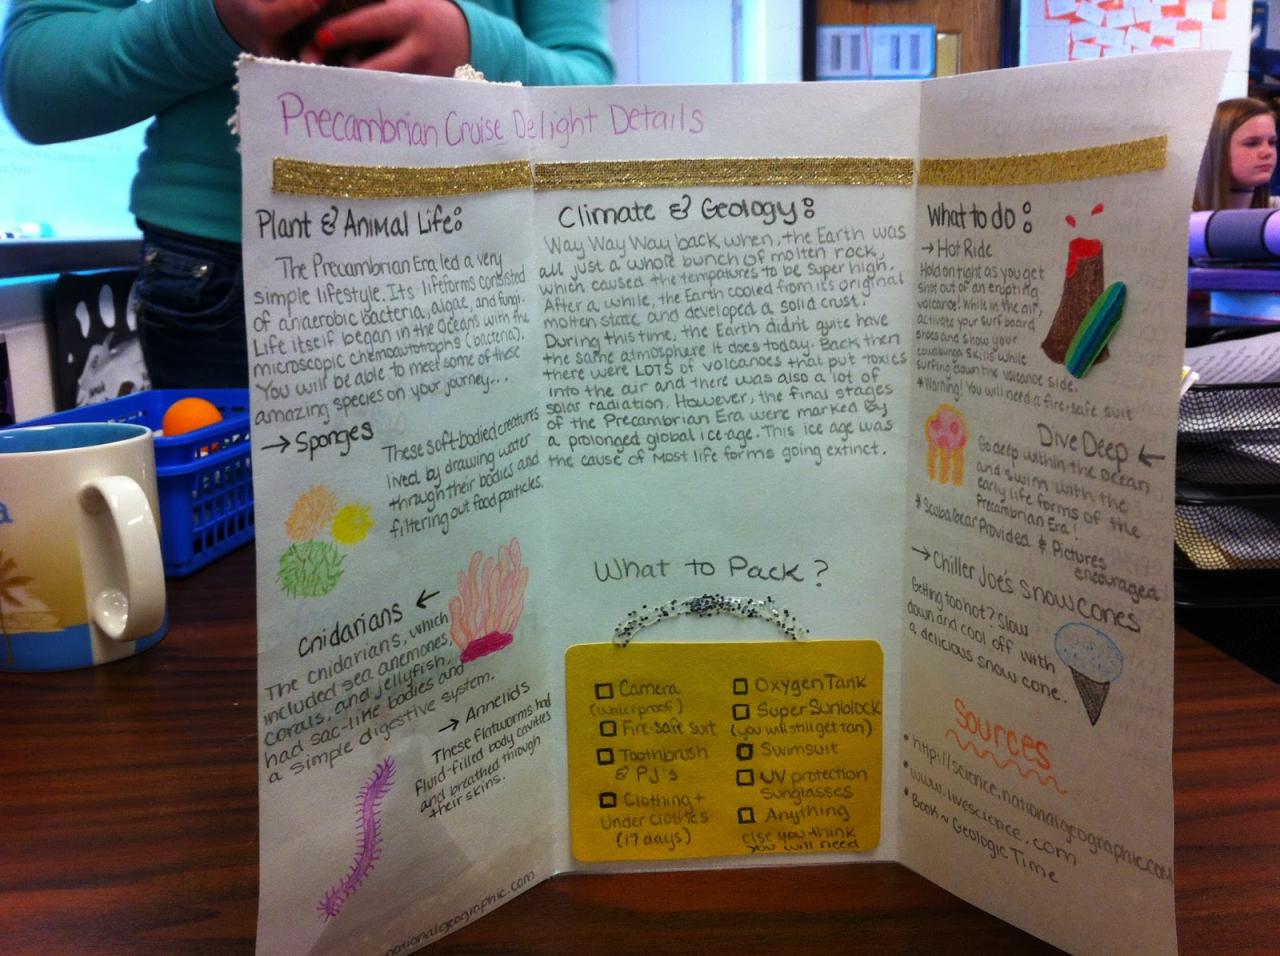 Precambrian Cruise Delight Details
Plant & Animal Life:
The Precambrian Era led a very
simple lifestyle. Its lifeforms consisted
of anaerobic bacteria, algae, and fungi.
Life itself began in the Oceans with the
microscopic chemoautotrophs (bacteria).
You will be able to meet some of these
amazing species on your journey...
→ Sponges
These soft-bodied creatures
lived by drawing water
through their bodies and
filtering out food particles.
Cnidarians ←
The cnidarians, which
included sea anemones,
corals, and jellyfish,
had sac-like bodies and
a simple digestive system.
→ Annelids
These flatworms had
fluid-filled body cavities
and breathed through
their skins.
nationalgeographic.com
Climate & Geology:
Way Way Way back, when, the Earth was
all just a whole bunch of molten rock,
which caused the tempatures to be super high.
After a while, the Earth cooled from its original
molten state and developed a solid crust.
During this time, the Earth didn't quite have
the same atmosphere it does today. Back then
there were LOTS of volcanoes that put toxics
into the air and there was also a lot of
solar radiation. However, the final stages
of the Precambrian Era were marked by
a prolonged global ice-age. This ice age was
the cause of most life forms going extinct.
What to Pack?
Camera
(waterproof)
Fire-safe suit
Toothbrush
& PJ's
Clothing +
Under clothes
(17 days)
Oxygen Tank
Super Sunblock
(you will still get tan)
Swimsuit
UV protection
Sunglasses
Anything
else you think
you will need
What to do:
→ Hot Ride
Hold on tight as you get
shot out of an erupting
volcano! While in the air,
activate your surf board
shoes and show your
cowabunga skills while
surfing down the volcanoe side.
*Warning! You will need a fire-safe suit
Dive Deep ←
Go deep within the ocean
and swim with the
early life forms of the
Precambrian Era!
* Scuba Gear Provided & Pictures
encouraged
→ Chiller Joe's Snowcones
Getting too hot? Slow
down and cool off with
a delicious snow cone.
Sources
• http://science.nationalgeographic.com
• www.livescience.com
• Book ~ Geologic Time